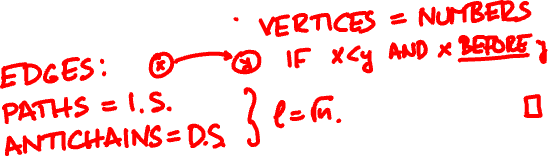 · VERTICES = NUMBERS
EDGES: x → y IF x<y AND x BEFORE y
PATHS = I.S.
ANTICHAINS = D.S. } l = √n. □